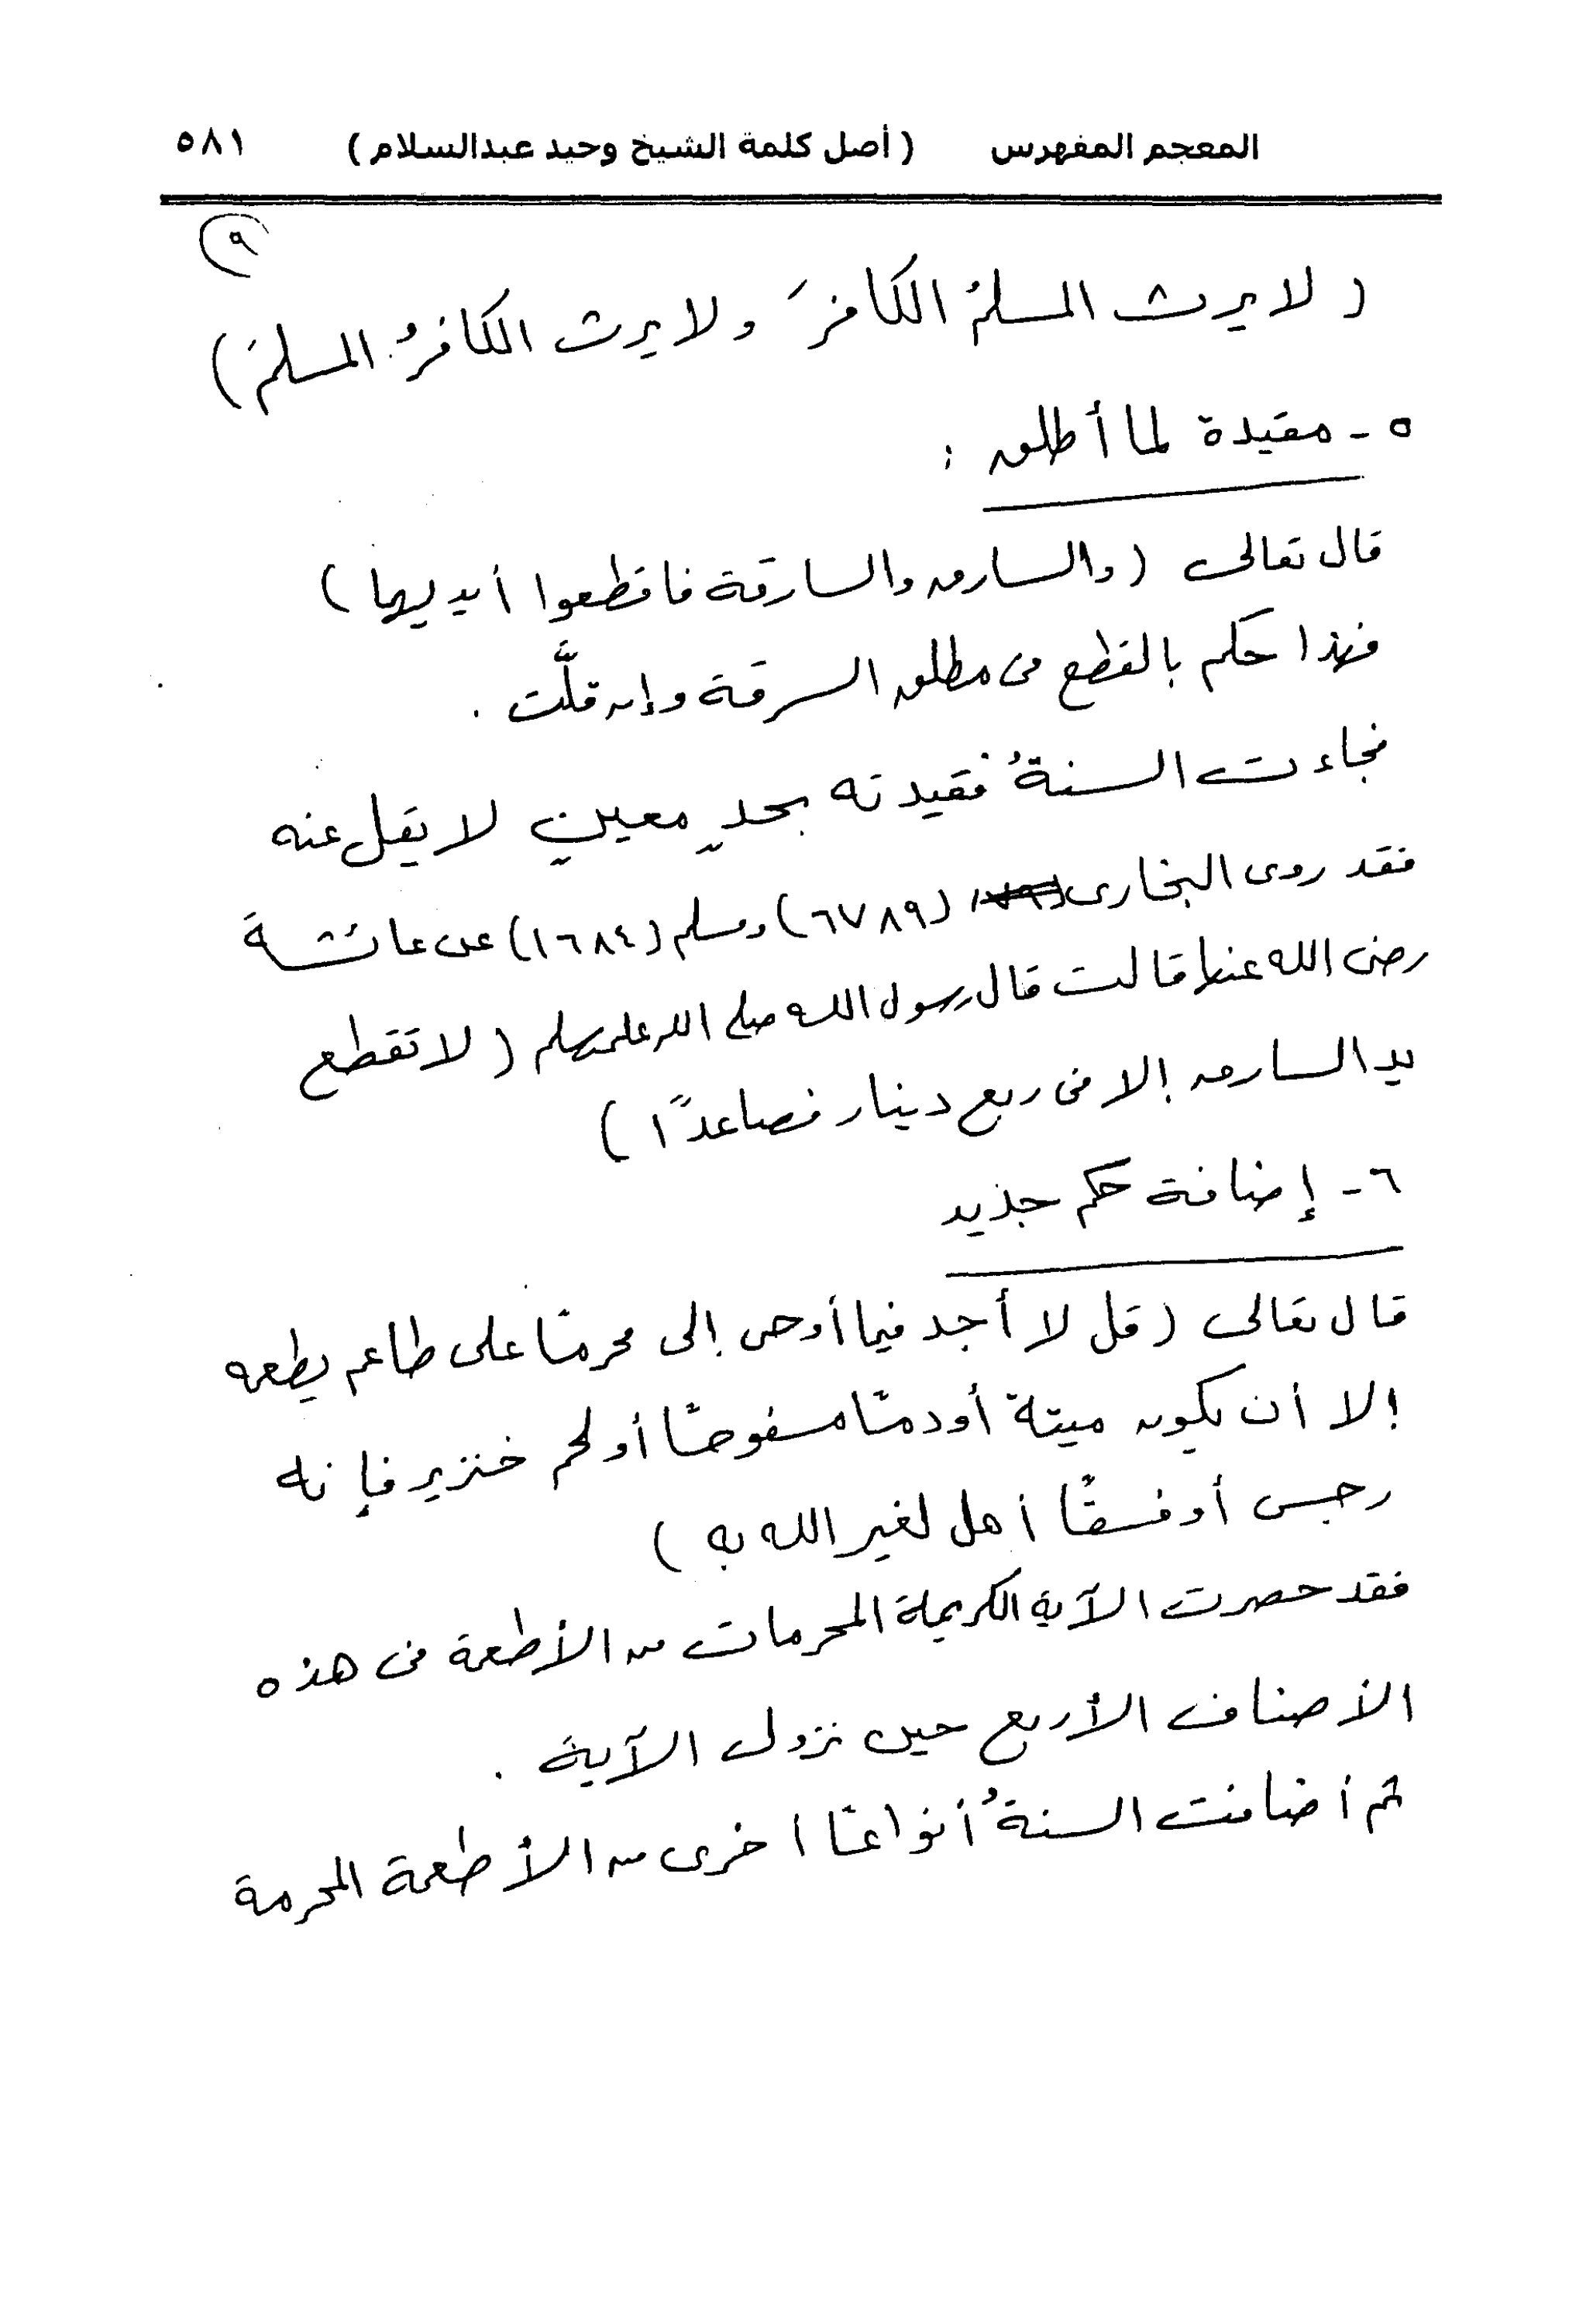 المعجم المفهرس ( أصل كلمة الشيخ وحيد عبدالسلام ) ٥٨١
٩
( لا يرث المسلمُ الكافرَ ولا يرث الكافرُ المسلمَ )
٥ - مقيدة لما أطلق :
قال تعالى ( والسارق والسارقة فاقطعوا أيديهما )
فهذا حكم بالقطع فى مطلق السرقة وإن قلَّت .
فجاءت السنةُ فقيدته بحدٍ معينٍ لا يقل عنه
فقد روى البخارى (٦٧٨٩) ومسلم (١٦٨٤) عن عائشة
رضى الله عنها قالت قال رسول الله صلى الله عليه وسلم ( لا تقطع
يد السارق إلا فى ربع دينار فصاعدًا )
٦ - إضافة حكم جديد
قال تعالى ( قل لا أجد فيما أوحى إلى محرمًا على طاعم يطعمه
إلا أن يكون ميتة أو دمًا مسفوحًا أو لحم خنزير فإنه
رجس أو فسقًا أهل لغير الله به )
فقد حصرت الآية الكريمة المحرمات من الأطعمة فى هذه
الأصناف الأربع حين نزول الآية .
ثم أضافت السنةُ أنواعًا أخرى من الأطعمة المحرمة